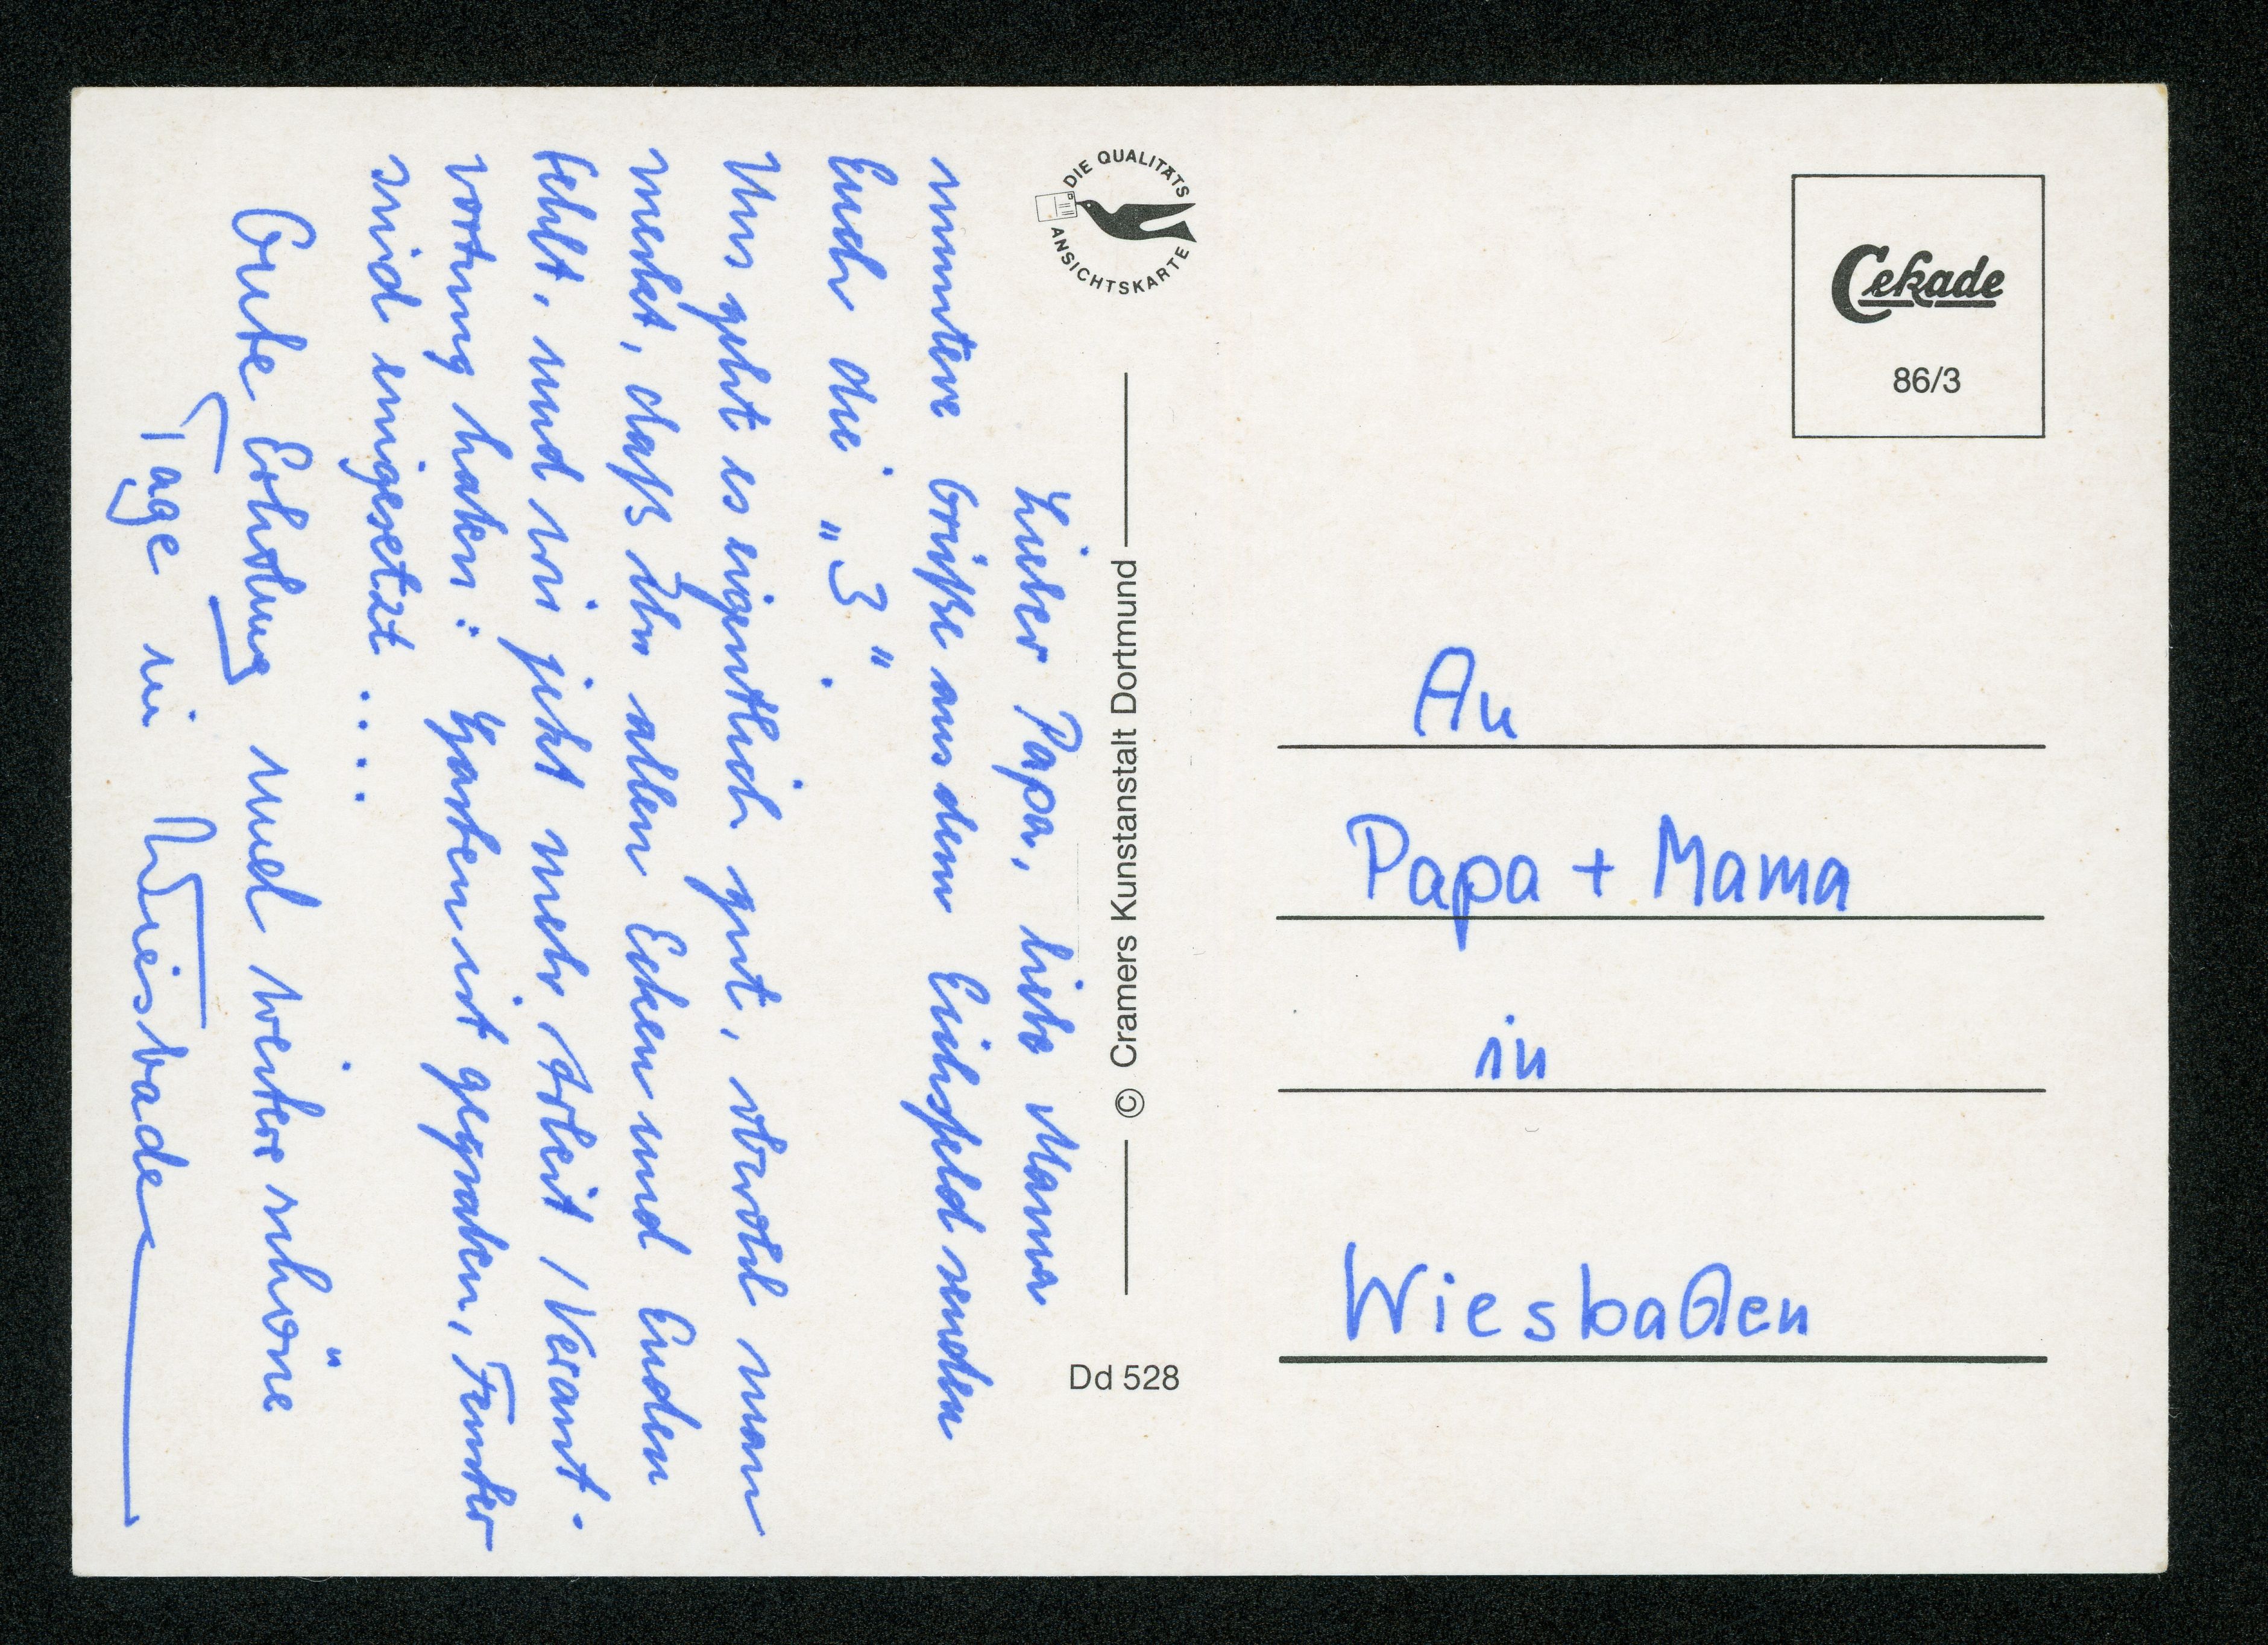 Lieber Papa, liebe Mama
muntere Grüße aus dem Eichsfeld senden
Euch die „3“.
Uns geht es eigentlich gut, obwohl man
merkt, daß Ihr allen Ecken und Enden
fehlt, und wir jetzt mehr Arbeit / Verant-
wortung haben! Garten ist gegraben, Fenster
sind eingesetzt ....
Gute Erholung und weitere schöne
Tage in Wiesbaden
DIE QUALITÄTS
ANSICHTSKARTE
© Cramers Kunstanstalt Dortmund
Dd 528
Cekade
86/3
An
Papa + Mama
in
Wiesbaden